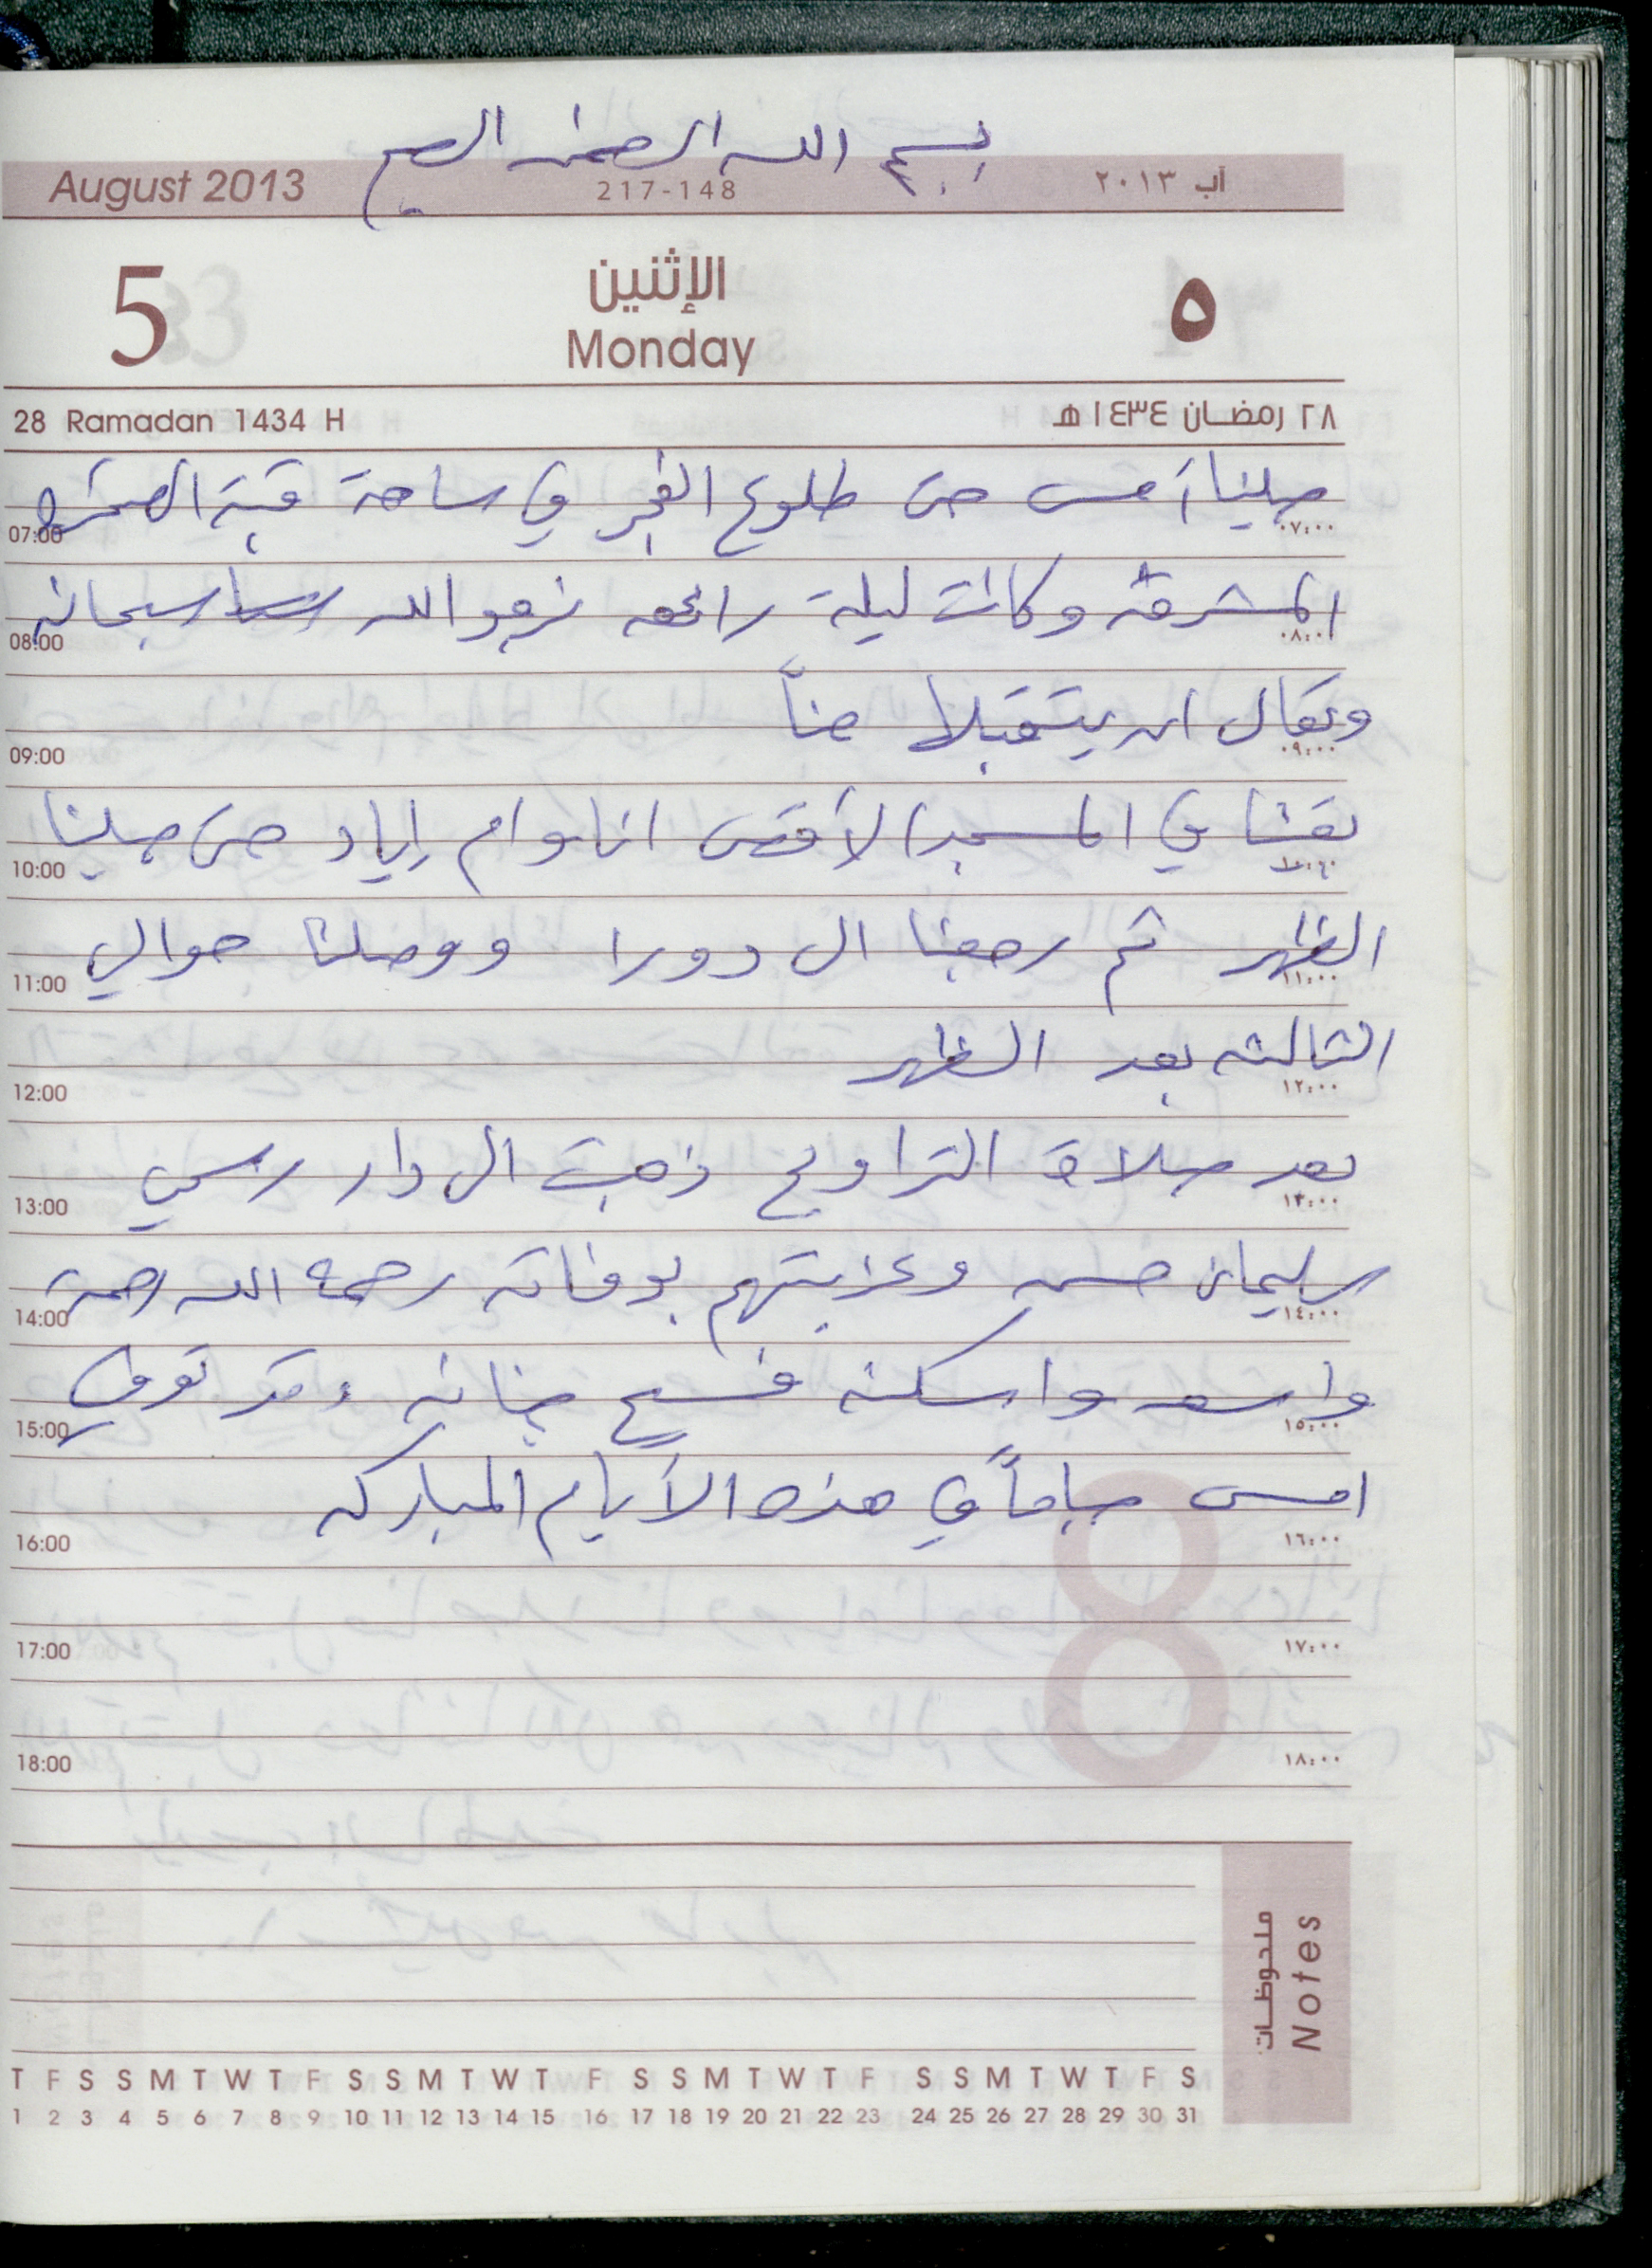 بسم الله الرحمن الرحيم
August 2013 217-148 آب ٢٠١٣
5 الإثنين ٥
Monday
28 Ramadan 1434 H ٢٨ رمضان ١٤٣٤ هـ
صلينا أمس حتى طلوع الفجر في ساحة قبة الصخرة
07:00 ٠٧:٠٠
المشرفه وكانت ليلة رائعه نرجو الله سبحانه
08:00 ٠٨:٠٠
وتعالى ان يتقبلا منّا
09:00 ٠٩:٠٠
بقينا في المسجد الأقصى انا وام إياد حتى صلينا
10:00 ١٠:٠٠
الظهر ثم رجعنا الى دورا ووصلنا حوالي
11:00 ١١:٠٠
الثالثه بعد الظهر
12:00 ١٢:٠٠
بعد صلاة التراويح ذهبت الى دار رسمي
13:00 ١٣:٠٠
سليمان حسن وعزيتهم بوفاته رحمه الله رحمة
14:00 ١٤:٠٠
واسعه واسكنه فسيح جنانه وقد توفي
15:00 ١٥:٠٠
امس صباحاً في هذه الأيام المباركه
16:00 ١٦:٠٠
17:00 ١٧:٠٠
18:00 ١٨:٠٠
8
ملحوظات
Notes
T F S S M T W T F S S M T W T F S S M T W T F S S M T W T F S
1 2 3 4 5 6 7 8 9 10 11 12 13 14 15 16 17 18 19 20 21 22 23 24 25 26 27 28 29 30 31